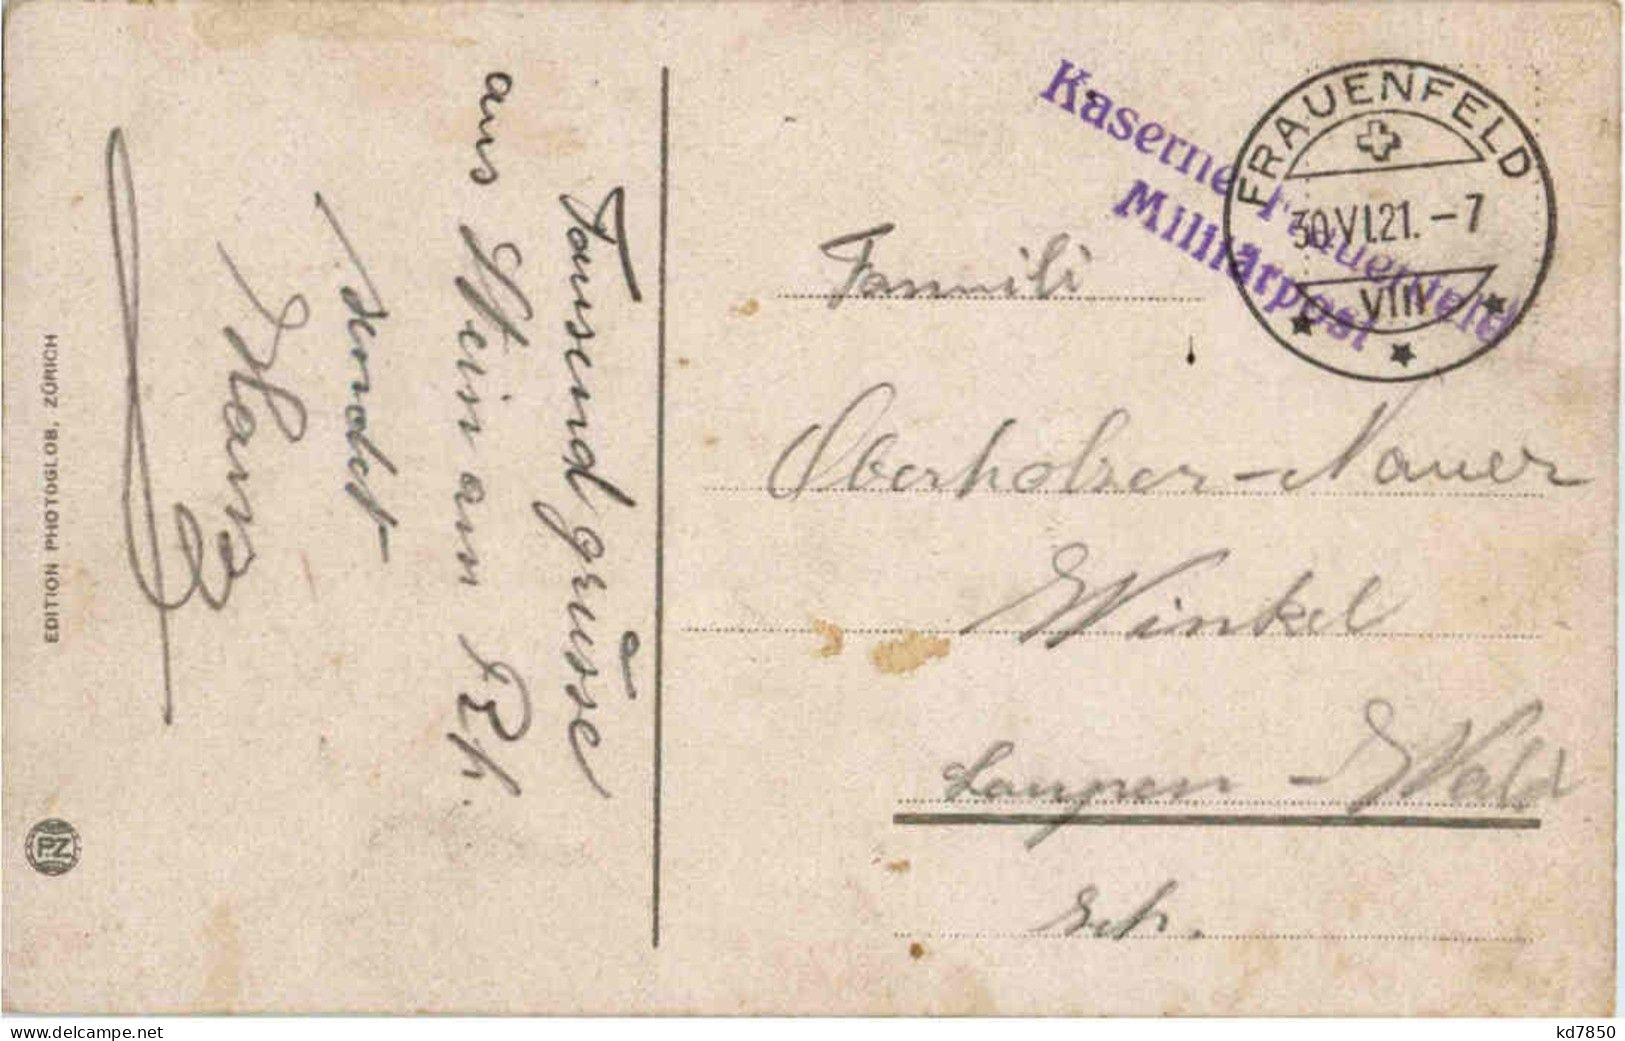 Tausend grüsse
aus Stein am Rh.
sendet
Hans
EDITION PHOTOGLOB, ZÜRICH
P.Z.
Kaserne Frauenfeld
Militärpost
FRAUENFELD
30.VI.21.-7
VIII
Familie
Oberholzer-Nauer
Winkel
Laupen-Wald
www.delcampe.net
kd7850